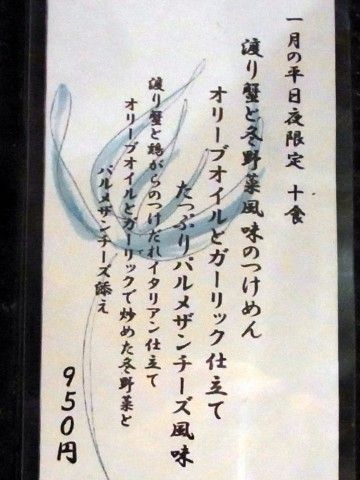 一月の平日夜限定 十食
渡り蟹と冬野菜風味のつけめん
オリーブオイルとガーリック仕立て
たっぷりパルメザンチーズ風味
渡り蟹と鶏がらのつけだれイタリアン仕立て
オリーブオイルとガーリックで炒めた冬野菜と
パルメザンチーズ添え
950円